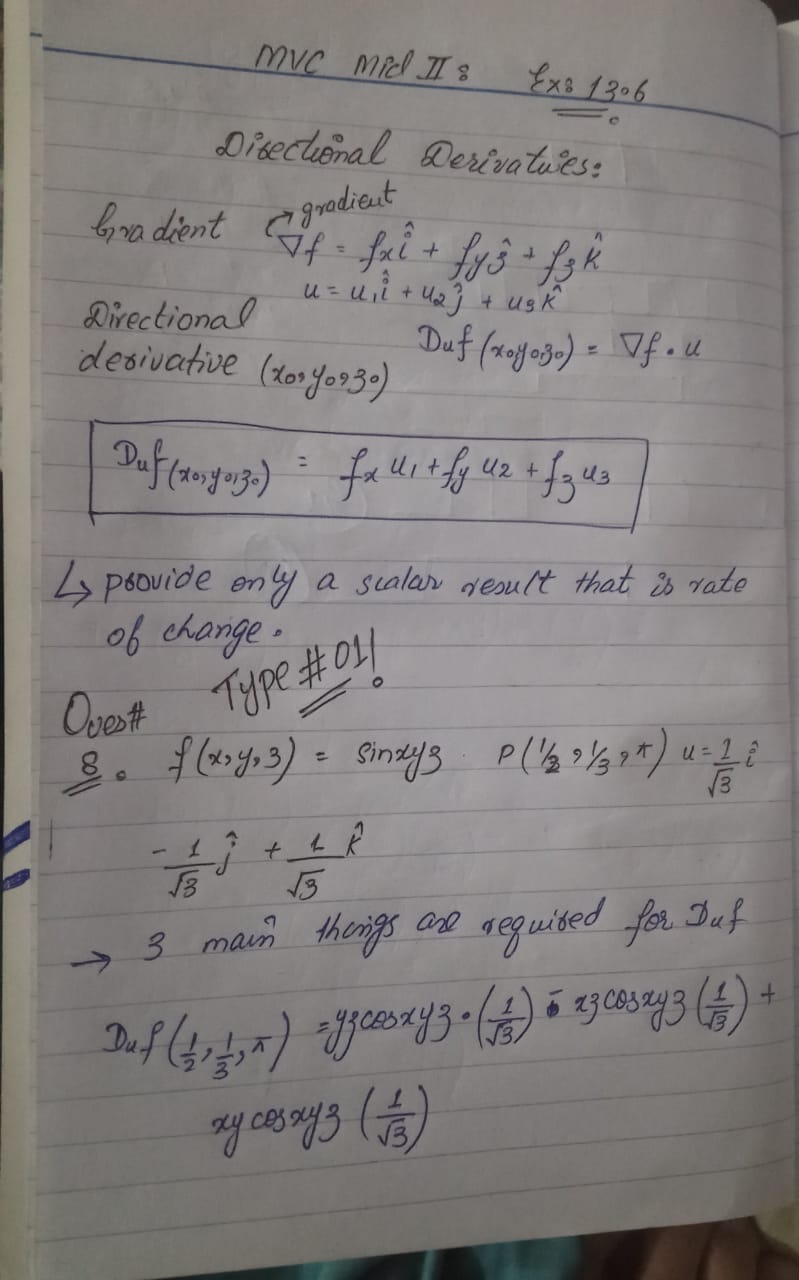 MVC Mid II : Ex: 13.6
Directional Derivatives:
Gradient ↱ gradient
∇f = fxî + fyĵ + fzk̂
u = u₁î + u₂ĵ + u₃k̂
Directional
derivative (x₀,y₀,z₀) Duf(x₀y₀z₀) = ∇f • u
Duf(x₀,y₀,z₀) = fx u₁ + fy u₂ + fz u₃
↳ provide only a scalar result that is rate
of change.
Type # 01!
Ques#
8. f(x,y,z) = sinxyz P(1/2, 1/3, π) u = 1/√3 î
- 1/√3 ĵ + 1/√3 k̂
→ 3 main things are required for Duf
Duf(1/2, 1/3, π) = yzcosxyz • (1/√3) - xzcosxyz (1/√3) +
xycosxyz (1/√3)